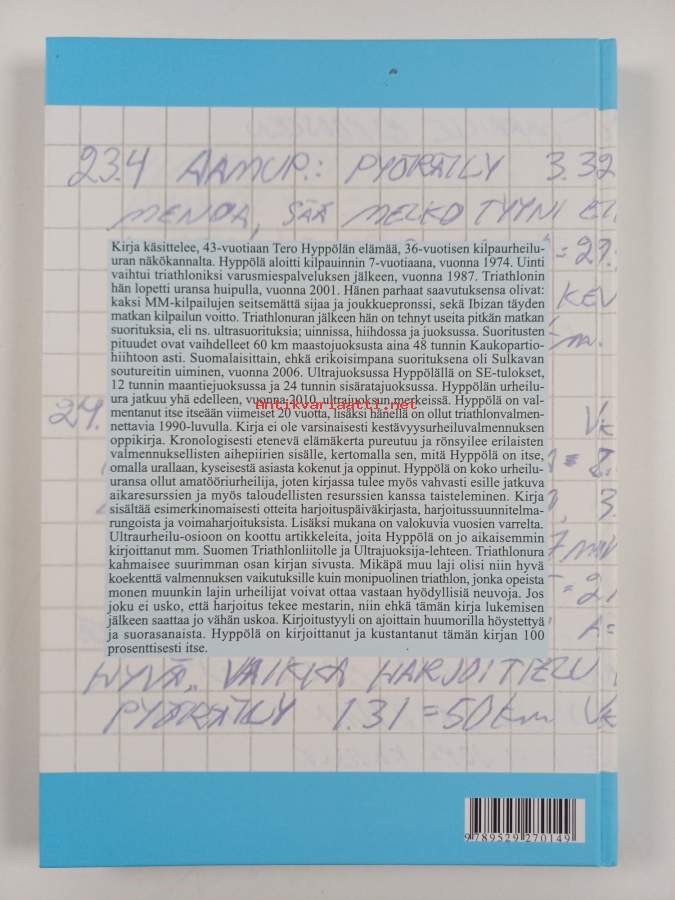 23.4 AAMUP.: PYÖRÄILY 3.32
MENOA, SÄÄ MELKO TYYNI
Kirja käsittelee, 43-vuotiaan Tero Hyppölän elämää, 36-vuotisen kilpaurheilu-
uran näkökannalta. Hyppölä aloitti kilpauinnin 7-vuotiaana, vuonna 1974. Uinti
vaihtui triathloniksi varusmiespalveluksen jälkeen, vuonna 1987. Triathlonin
hän lopetti uransa huipulla, vuonna 2001. Hänen parhaat saavutuksensa olivat:
kaksi MM-kilpailujen seitsemättä sijaa ja joukkuepronssi, sekä Ibizan täyden
matkan kilpailun voitto. Triathlonuran jälkeen hän on tehnyt useita pitkän matkan
suorituksia, eli ns. ultrasuorituksia; uinnissa, hiihdossa ja juoksussa. Suoritusten
pituudet ovat vaihdelleet 60 km maastojuoksusta aina 48 tunnin Kaukopartio-
hiihtoon asti. Suomalaisittain, ehkä erikoisimpana suorituksena oli Sulkavan
soutureitin uiminen, vuonna 2006. Ultrajuoksussa Hyppölällä on SE-tulokset,
12 tunnin maantiejuoksussa ja 24 tunnin sisäratajuoksussa. Hyppölän urheilu-
ura jatkuu yhä edelleen, vuonna 2010, ultrajuoksun merkeissä. Hyppölä on val-
mentanut itse itseään viimeiset 20 vuotta, lisäksi hänellä on ollut triathlonvalmen-
nettavia 1990-luvulla. Kirja ei ole varsinaisesti kestävyysurheiluvalmennuksen
oppikirja. Kronologisesti etenevä elämäkerta pureutuu ja rönsyilee erilaisten
valmennuksellisten aihepiirien sisälle, kertomalla sen, mitä Hyppölä on itse,
omalla urallaan, kyseisestä asiasta kokenut ja oppinut. Hyppölä on koko urheilu-
uransa ollut amatööriurheilija, joten kirjassa tulee myös vahvasti esille jatkuva
aikaresurssien ja myös taloudellisten resurssien kanssa taisteleminen. Kirja
sisältää esimerkinomaisesti otteita harjoituspäiväkirjasta, harjoitussuunnitelma-
rungoista ja voimaharjoituksista. Lisäksi mukana on valokuvia vuosien varrelta.
Ultraurheilu-osioon on koottu artikkeleita, joita Hyppölä on jo aikaisemmin
kirjoittanut mm. Suomen Triathlonliitolle ja Ultrajuoksija-lehteen. Triathlonura
kahmaisee suurimman osan kirjan sivusta. Mikäpä muu laji olisi niin hyvä
koekenttä valmennuksen vaikutuksille kuin monipuolinen triathlon, jonka opeista
monen muunkin lajin urheilijat voivat ottaa vastaan hyödyllisiä neuvoja. Jos
joku ei usko, että harjoitus tekee mestarin, niin ehkä tämän kirja lukemisen
jälkeen saattaa jo vähän uskoa. Kirjoitustyyli on ajoittain huumorilla höystettyä
ja suorasanaista. Hyppölä on kirjoittanut ja kustantanut tämän kirjan 100
prosenttisesti itse.
= 27.
KEV
24.
Antikvariaatti.net
3.
= 2,
A=
HYVÄ, VAIKKA HARJOITTELU
PYÖRÄILY 1.31 = 50 km Vk
9 789529 270149